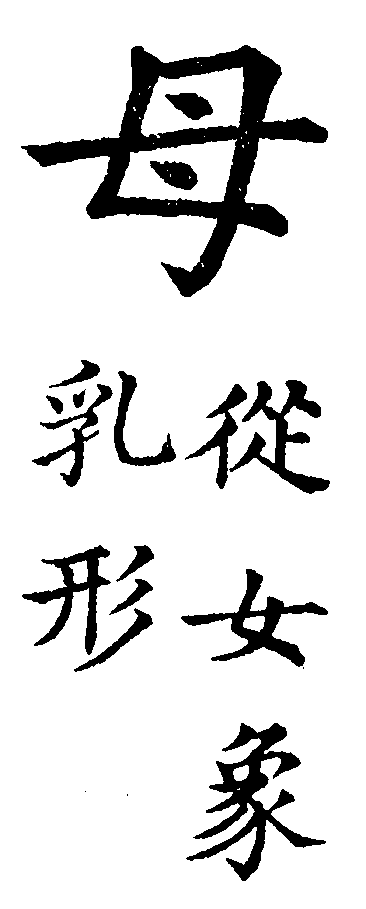 母
從女象
乳形